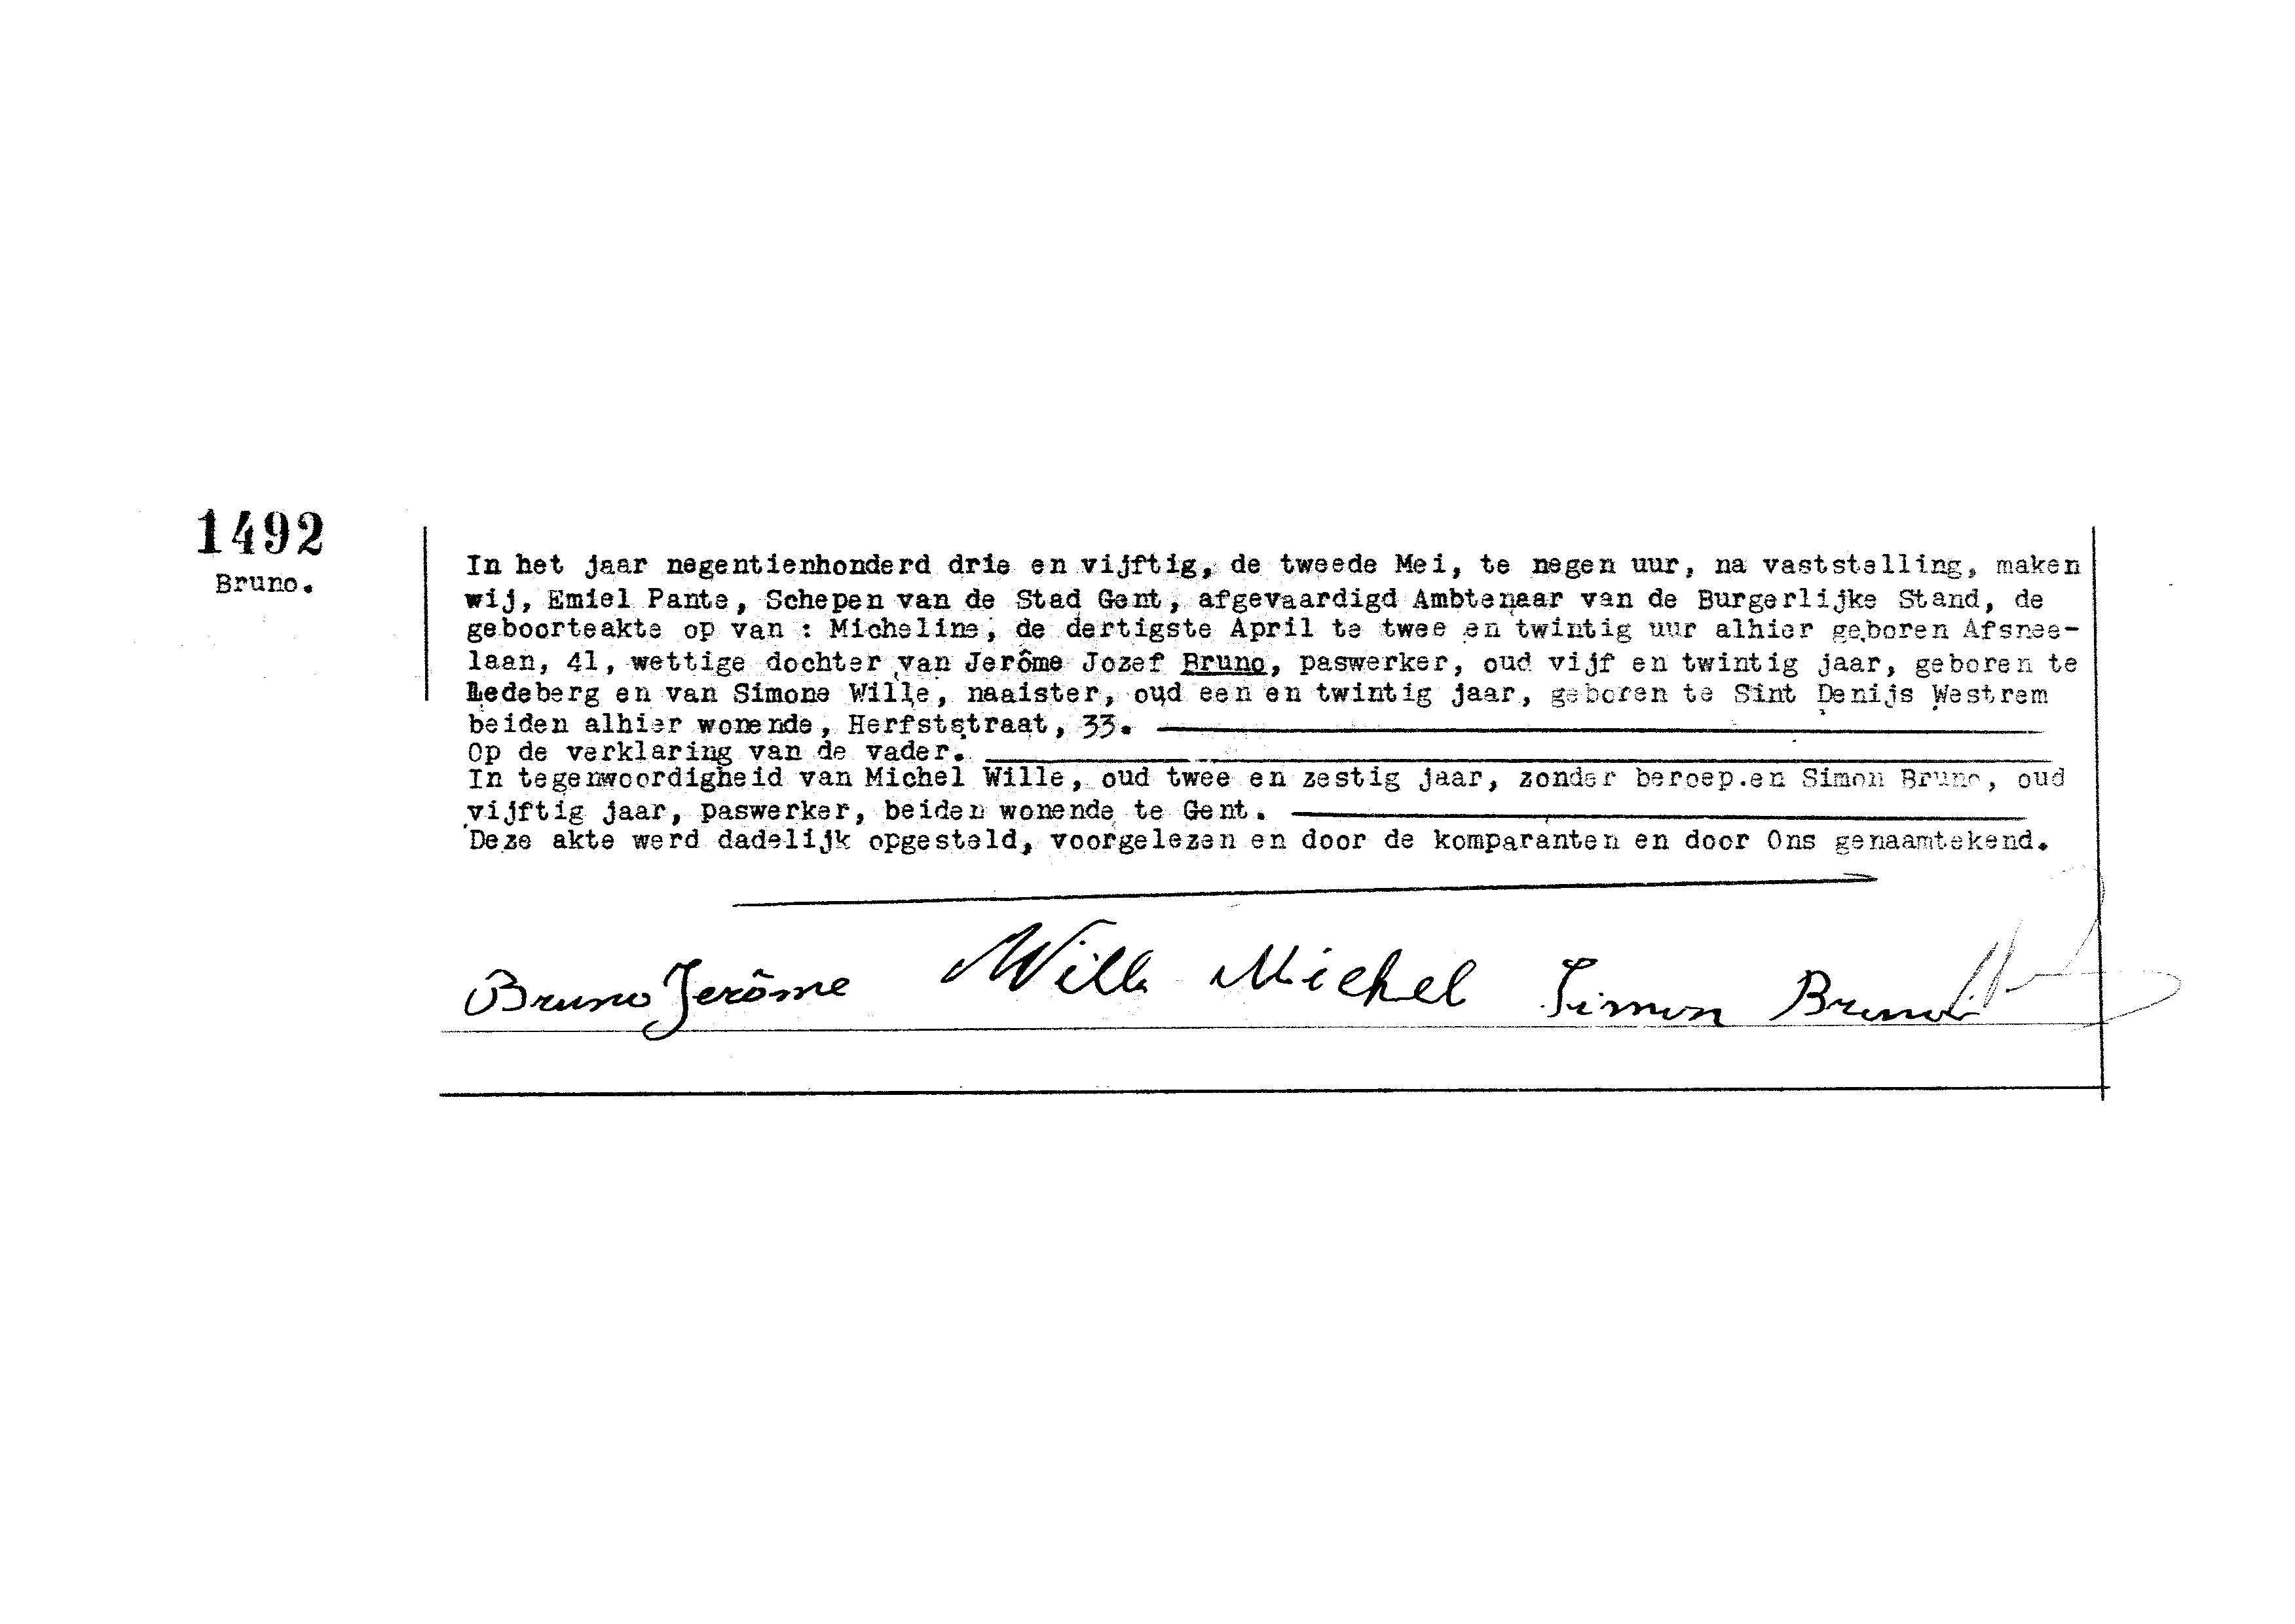 1492
Bruno.
In het jaar negentienhonderd drie en vijftig, de tweede Mei, te negen uur, na vaststelling, maken
wij, Emiel Pante, Schepen van de Stad Gent, afgevaardigd Ambtenaar van de Burgerlijke Stand, de
geboorteakte op van : Micheline, de dertigste April te twee en twintig uur alhier geboren Afsnee-
laan, 41, wettige dochter van Jerôme Jozef Bruno, paswerker, oud vijf en twintig jaar, geboren te
Ledeberg en van Simone Wille, naaister, oud een en twintig jaar, geboren te Sint Denijs Westrem
beiden alhier wonende, Herfststraat, 33.
Op de verklaring van de vader.
In tegenwoordigheid van Michel Wille, oud twee en zestig jaar, zonder beroep.en Simon Bruno, oud
vijftig jaar, paswerker, beiden wonende te Gent.
Deze akte werd dadelijk opgesteld, voorgelezen en door de komparanten en door Ons genaamtekend.
Bruno Jerôme Wille Michel Simon Bruno